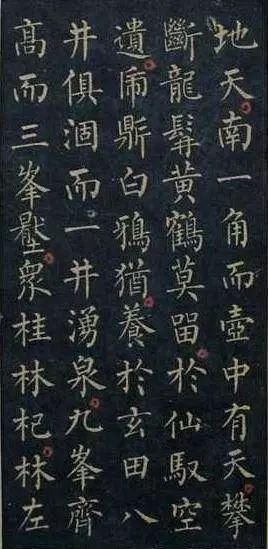 地天南一角而壺中有天攀
斷龍髯黃鶴莫畱於仙馭空
遺鬲鼎白鴉猶養於玄田八
井俱涸而一井湧泉九峯齊
髙而三峯壓衆桂林杞林左